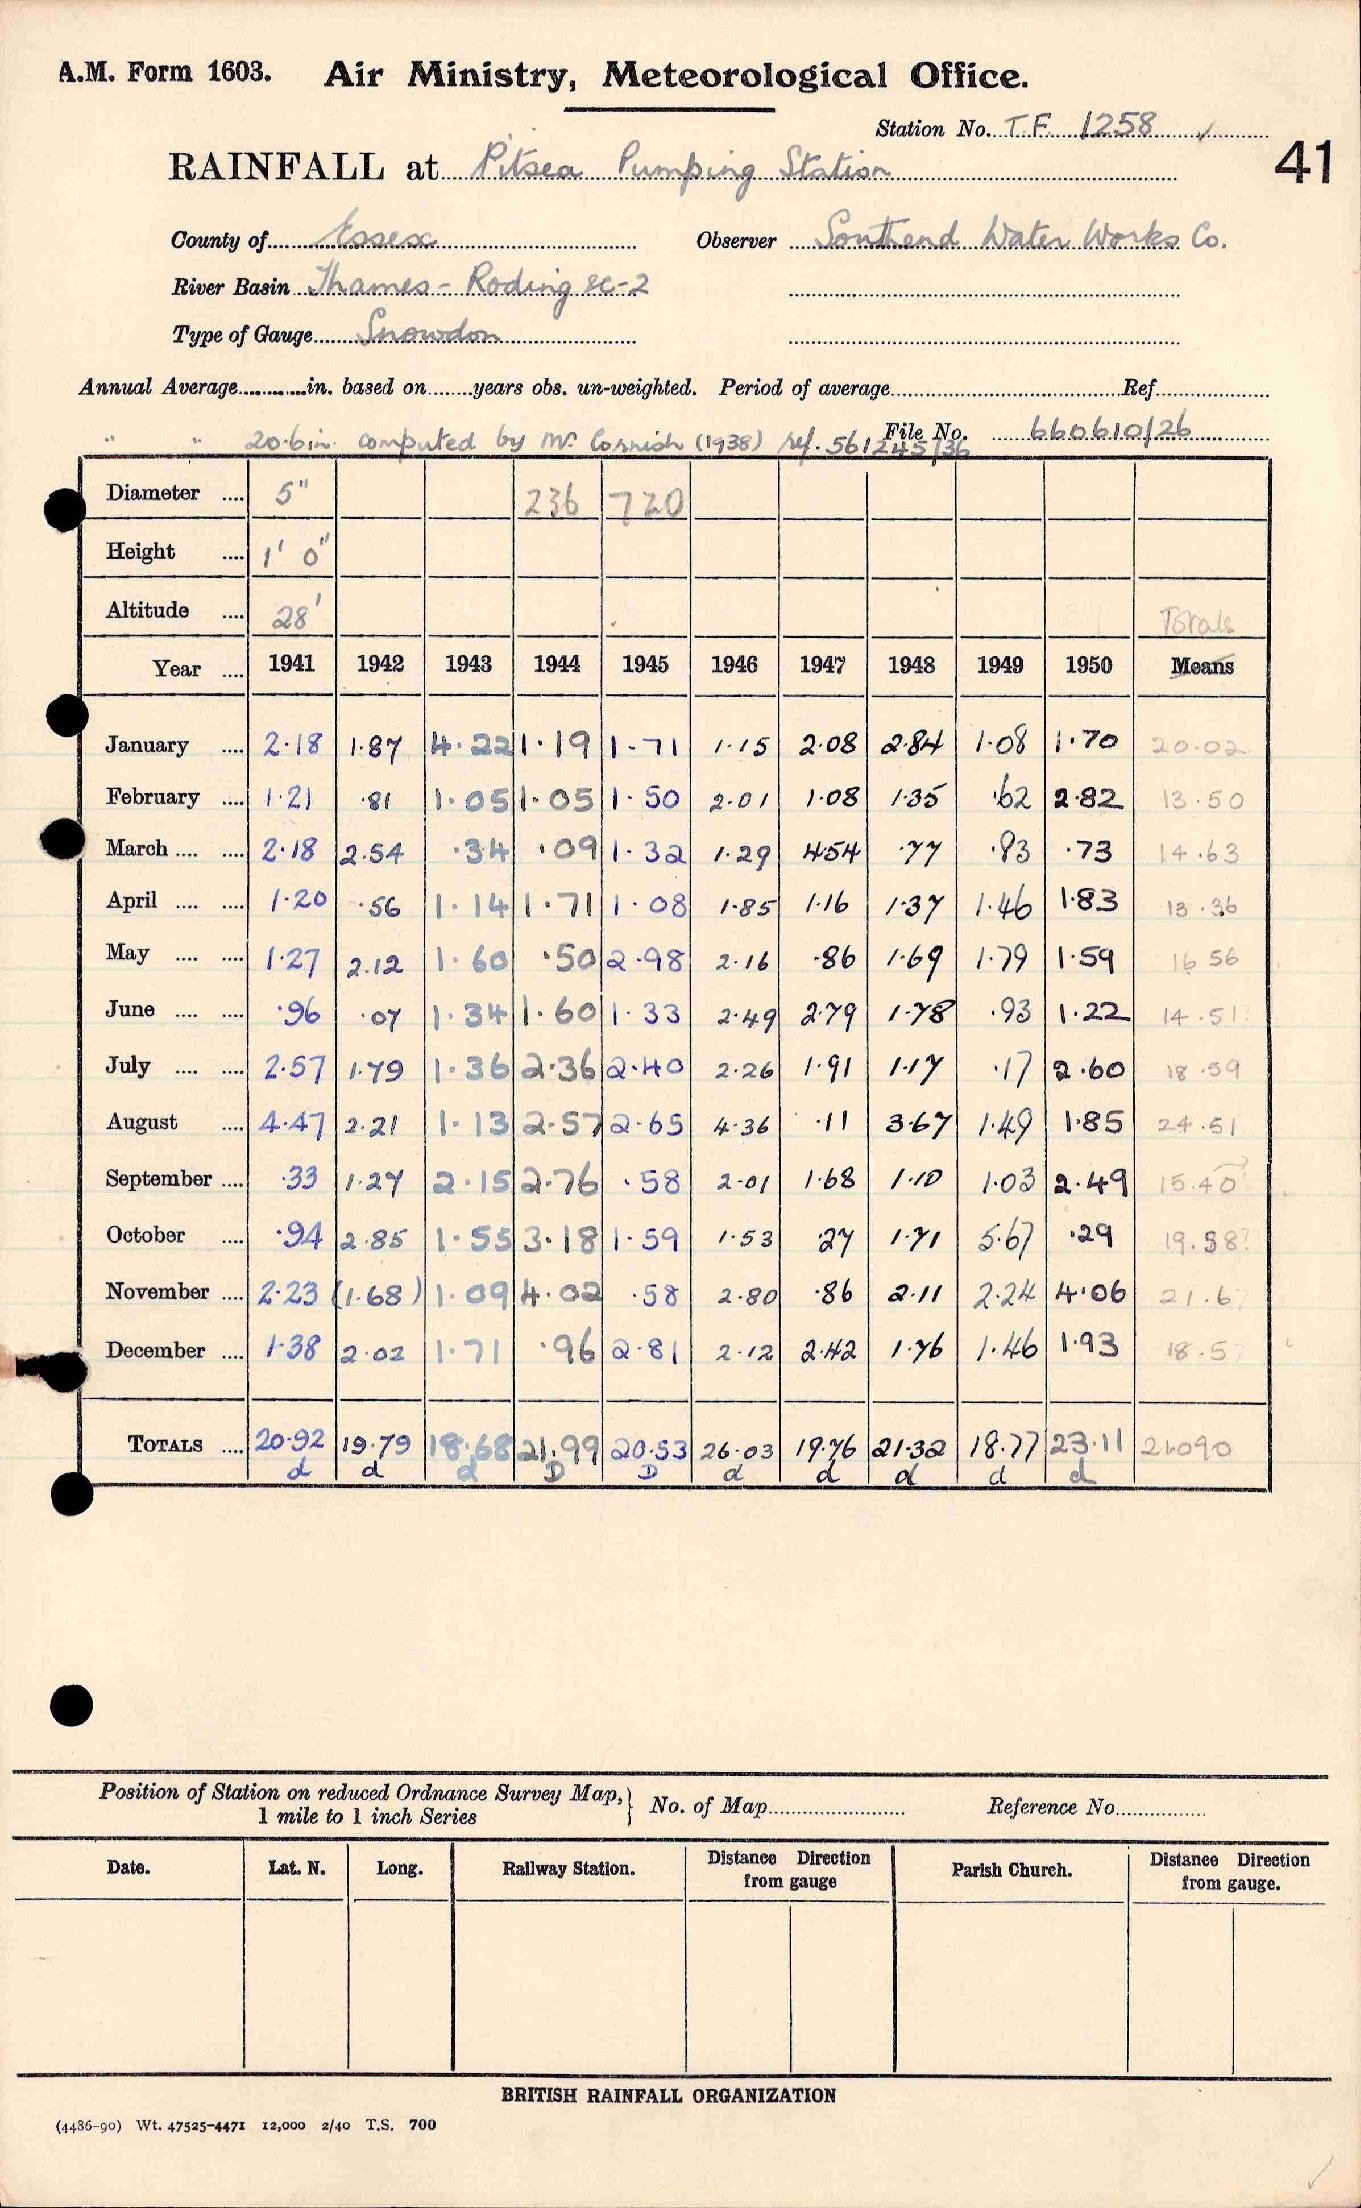 A.M. Form 1603. Air Ministry, Meteorological Office.
Station No. T.F. 1258 ✓
41
RAINFALL at Pitsea Pumping Station
County of Essex Observer Southend Water Works Co.
River Basin Thames - Roding &c-2
Type of Gauge Snowdon
Annual Average............in. based on........years obs. un-weighted. Period of average............Ref............
" " 20.6 in. computed by Mr Cornish (1938) ref. 561245/36 File No. 660610/26
Diameter .... 5" 236 720
Height .... 1' 0"
Altitude .... 28' Totals
Year .... 1941 1942 1943 1944 1945 1946 1947 1948 1949 1950 Means
January .... 2.18 1.87 4.22 1.19 1.71 1.15 2.08 2.84 1.08 1.70 20.02
February .... 1.21 .81 1.05 1.05 1.50 2.01 1.08 1.35 .62 2.82 13.50
March .... .... 2.18 2.54 .34 .09 1.32 1.29 4.54 .77 .83 .73 14.63
April .... .... 1.20 .56 1.14 1.71 1.08 1.85 1.16 1.37 1.46 1.83 13.36
May .... .... 1.27 2.12 1.60 .50 2.98 2.16 .86 1.69 1.79 1.59 16 56
June .... .... .96 .07 1.34 1.60 1.33 2.49 2.79 1.78 .93 1.22 14.51?
July .... .... 2.57 1.79 1.36 2.36 2.40 2.26 1.91 1.17 .17 2.60 18.59
August .... 4.47 2.21 1.13 2.57 2.65 4.36 .11 3.67 1.49 1.85 24.51
September .... .33 1.27 2.15 2.76 .58 2.01 1.68 1.10 1.03 2.49 15.40
October .... .94 2.85 1.55 3.18 1.59 1.53 .27 1.71 5.67 .29 19.58?
November .... 2.23 (1.68) 1.09 4.02 .58 2.80 .86 2.11 2.24 4.06 21.67
December .... 1.38 2.02 1.71 .96 2.81 2.12 2.42 1.76 1.46 1.93 18.57
TOTALS .... 20.92 19.79 18.68 21.99 20.53 26.03 19.76 21.32 18.77 23.11 210.90
d d d D D d d d d d
Position of Station on reduced Ordnance Survey Map, } No. of Map............ Reference No............
1 mile to 1 inch Series
Date. Lat. N. Long. Railway Station. Distance Direction from gauge Parish Church. Distance Direction from gauge.
BRITISH RAINFALL ORGANIZATION
(4486-90) Wt. 47525-4471 12,000 2/40 T.S. 700